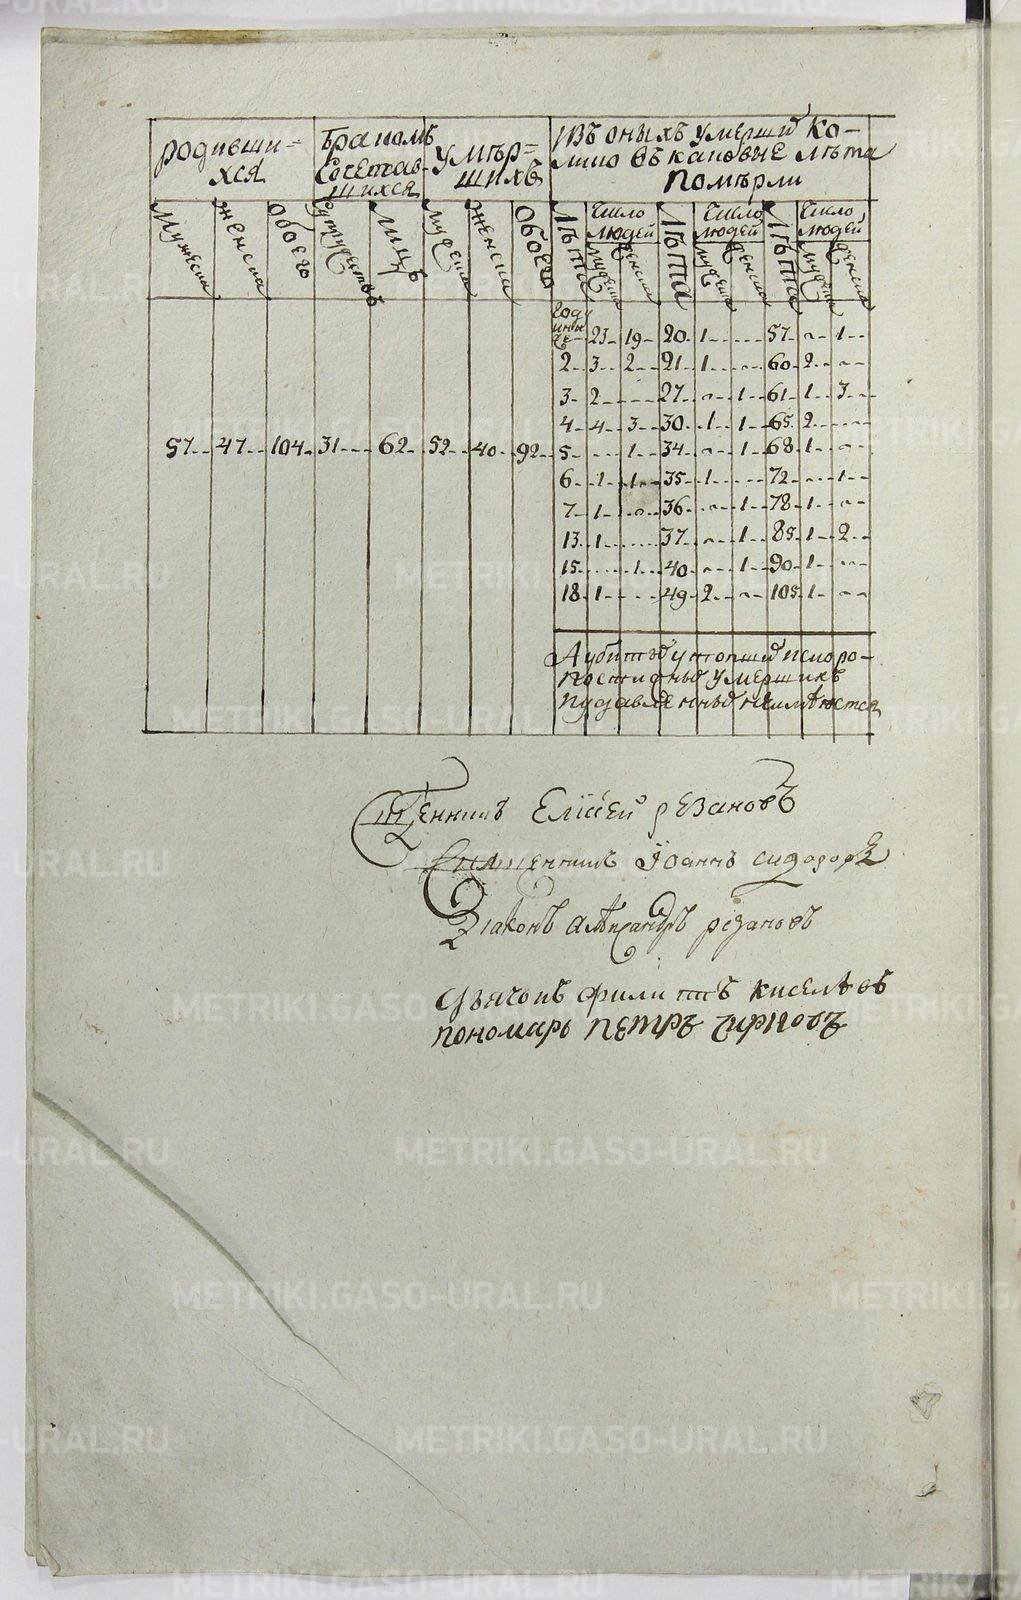 родивши=
хся
бракомъ
Сочетав-
шихся
умѣр=
шихъ
Изъ оныхъ умерши ко-
лико въ каковые лѣта
помѣрли
мужеска
женска
обоего
Супружествъ
лицъ
мужеска
женска
обоего
лѣта
число
людей
мужеска
женска
лѣта
число
людей
мужеска
женска
лѣта
число
людей
мужеска
женска
23 19 20 1 57 1
2 3 2 21 1 60 2
3 2 27 1 61 1 3
4 4 3 30 1 1 65 2
57 47 104 31 62 52 40 92 5 1 34 1 68 1
6 1 1 35 1 72 1
7 1 36 1 78 1
13 1 37 1 85 1 2
15 1 40 1 90 1
18 1 49 2 105 1
А убитыхъ утопши искоро-
постижныхъ умершихъ
иудавленныхъ неимѣютса
Елисей рѣзановъ
Священникъ Іоаннъ сидоровъ
Діаконъ алеѯандръ рѣзановъ
дьячокъ филиппъ киселѣвъ
пономарь петръ
METRIKI.GASO-URAL.RU